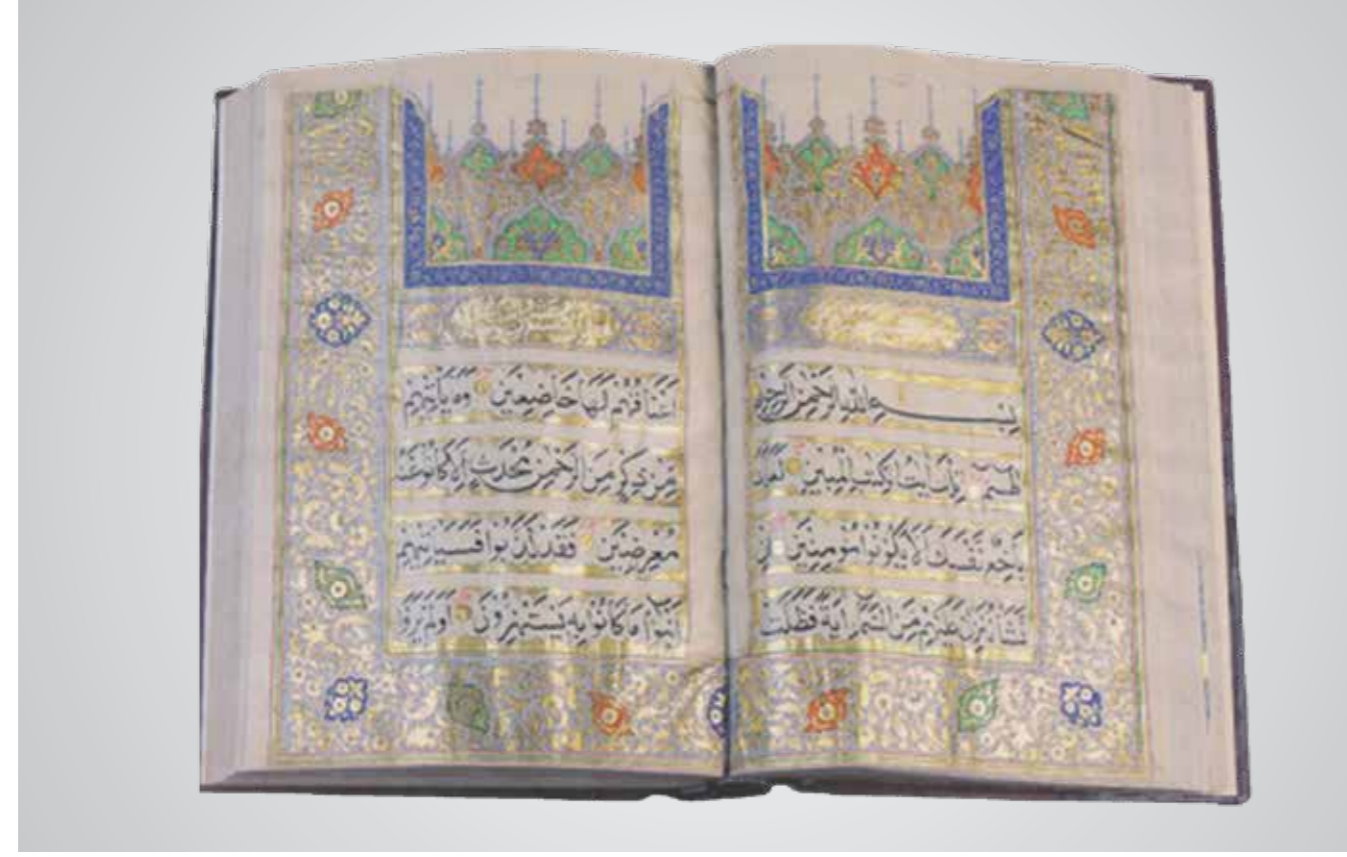 بِسْمِ اللهِ الرَّحْمٰنِ الرَّحِيمِ
طٰسٓمٓ تِلْكَ اٰيٰتُ الْكِتٰبِ الْمُبِينِ لَعَلَّكَ
بَاخِعٌ نَفْسَكَ اَلَّا يَكُونُوا مُؤْمِنِينَ اِنْ
نَشَأْ نُنَزِّلْ عَلَيْهِمْ مِنَ السَّمَآءِ اٰيَةً فَظَلَّتْ
اَعْنَاقُهُمْ لَهَا خَاضِعِينَ وَمَا يَأْتِيهِمْ
مِنْ ذِكْرٍ مِنَ الرَّحْمٰنِ مُحْدَثٍ اِلَّا كَانُوا عَنْهُ
مُعْرِضِينَ فَقَدْ كَذَّبُوا فَسَيَأْتِيهِمْ
اَنْبٰٓؤُا مَا كَانُوا بِهِ يَسْتَهْزِؤُنَ اَوَلَمْ يَرَوْا